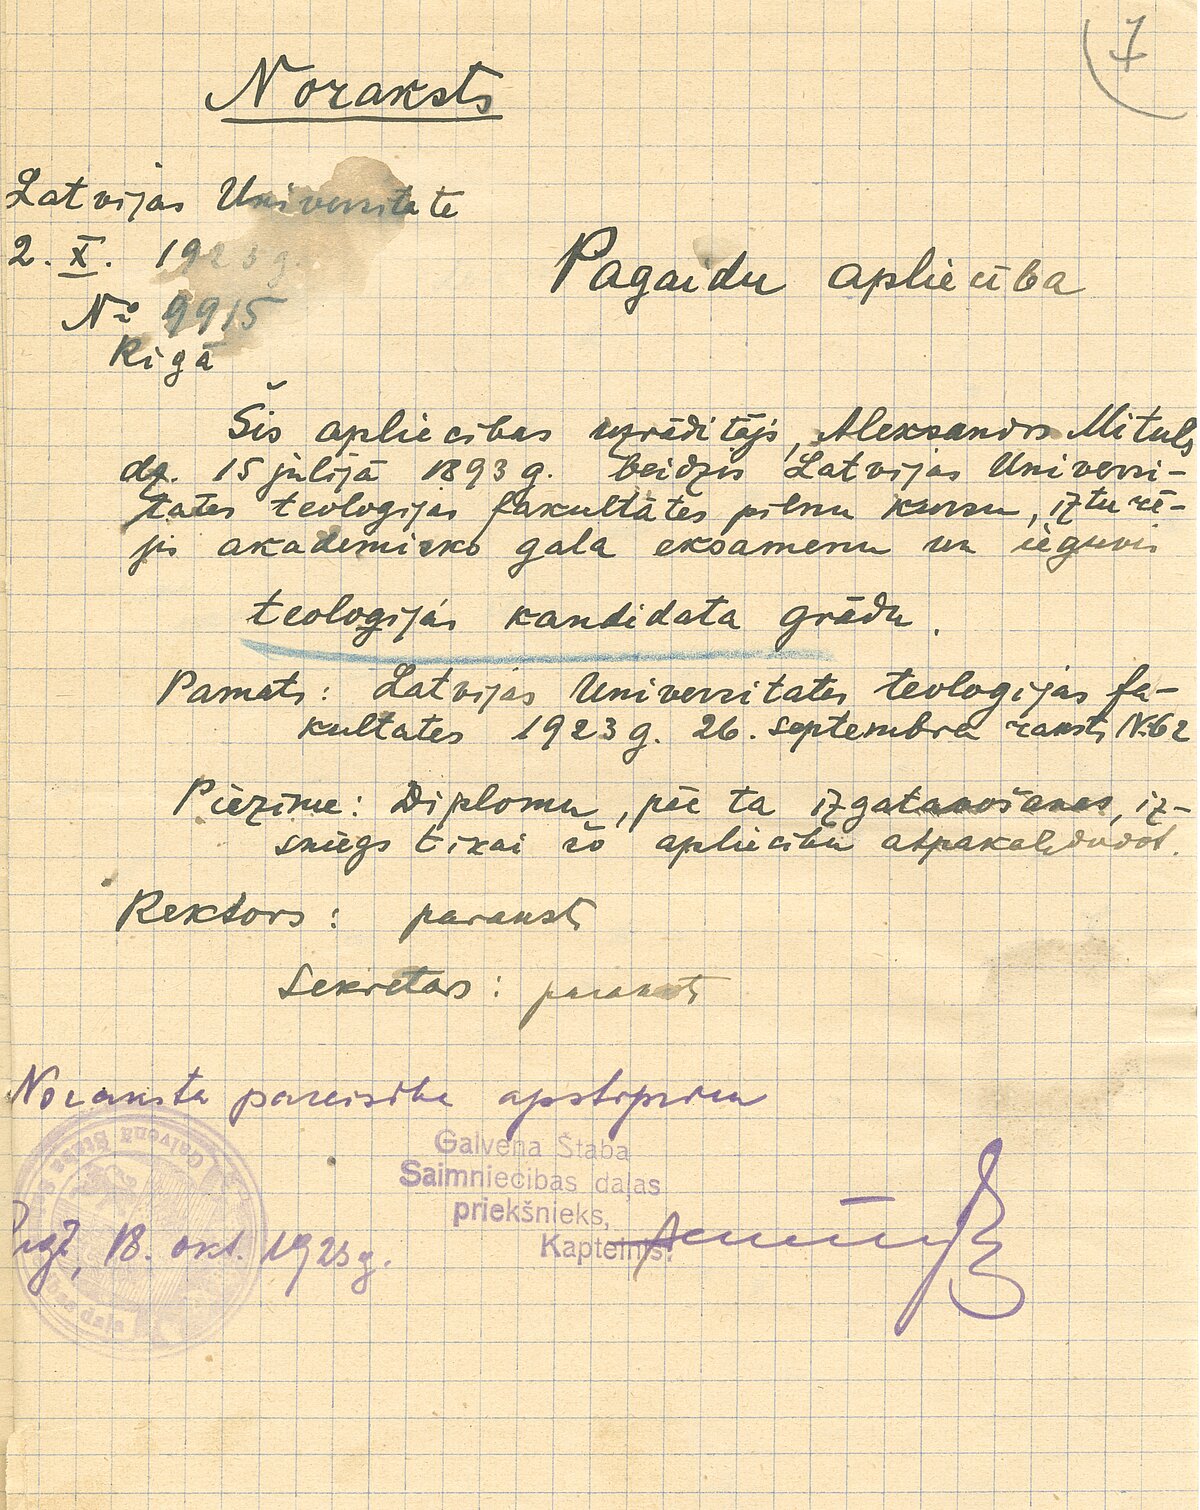 7
Noraksts
Latvijas Universitate
2. X. 1923 g.
No 9915
Rigā
Pagaidu apliecība
Šis apliecibas uzrāditājs, Aleksandrs Mituls
dz. 15 jūlijā 1893 g. beidzis Latvijas Universi-
tates teologijas fakultātes pilnu kursu, izturē-
jis akademisko gala eksamenu un ieguvis
teologijas kandidata grādu.
Pamats: Latvijas Universitates teologijas fa-
kultates 1923 g. 26. septembra raksts N:62
Piezīme: Diplomu, pēc ta izgatavošanas, iz-
sniegs tikai šo apliecibu atpakaļ dodot.
Rektors: paraksts
Sekretars: paraksts
Noraksta pareisibu apstiprinu
Galvenā Štaba
Saimniecības daļas
priekšnieks,
Kapteinis:
Rīgā, 18. okt. 1923 g.